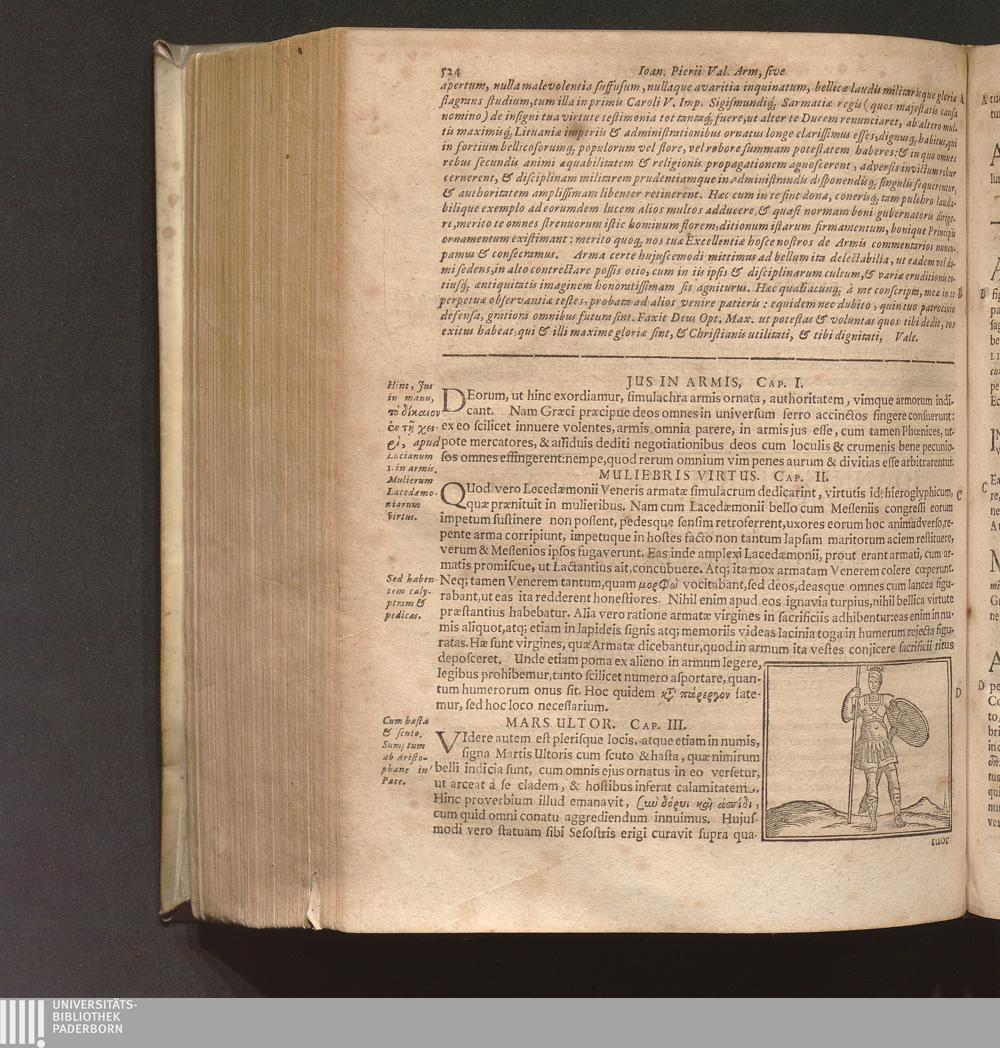 524 Ioan. Pierii Val. Arm, sive
apertum, nulla malevolentia suffusum, nullaque avaritia inquinatum, bellicæ laudis militarisque gloriæ A
flagrans studium, tum illa in primis Caroli V. Imp. Sigismundiq́; Sarmatiæ regis (quos majestatis causa
nomino) de insigni tua virtute testimonia tot tantaq́; fuere, ut alter te Ducem renunciaret, ab altero mul-
tis maximisq́; Lituaniæ imperiis & administrationibus ornatus longe clarissimus esses, dignusq; habitus, qui
in fortium bellicosorumq́; populorum vel flore, vel robore summam potestatem haberes: & in quo omnes
rebus secundis animi æquabilitatem & religionis propagationem agnoscerent, adversis invictum robur
cernerent, & disciplinam militarem prudentiamque in administrandis disponendisq́; singulis sequerentur,
& authoritatem amplissimam libenter retinerent. Hæc cum in te sint dona, conerisq́; tum pulchro lauda-
bilique exemplo ad eorumdem lucem alios multos adducere, & quasi normam boni gubernatoris dirige-
re, merito te omnes strenuorum istic hominum florem, ditionum istarum firmamentum, bonique Principis
ornamentum existimant: merito quoq; nos tuæ Excellentiæ hosce nostros de Armis commentarios nuncu-
pamus & consecramus. Arma certe hujuscemodi mittimus ad bellum ita delectabilia, ut eadem vel do-
mi sedens, in alto contrectare possis otio, cum in iis ipsis & disciplinarum cultum, & variæ eruditionis to-
tiusq́; antiquitatis imaginem honoratissimam sis agniturus. Hæc qualiacunq; à me conscripta, meæ in te B
perpetuæ observantiæ testes, probata ad alios venire patieris: equidem nec dubito, quin tuo patrocinio
defensa, gratiora omnibus futura sint. Faxit Deus Opt. Max. ut potestas & voluntas quos tibi dedit, eos
exitus habeat, qui & illi maxime gloriæ sint, & Christianis utilitati, & tibi dignitati, Vale.
JUS IN ARMIS, Cap. I.
Hinc, Jus
in manu,
τὸ δίκαιον
ἐν τῇ χει-
ρὶ, apud
Lucianum
1. in armis.
DEorum, ut hinc exordiamur, simulachra armis ornata, authoritatem, vimque armorum indi-
cant. Nam Græci præcipue deos omnes in universum ferro accinctos fingere consuerunt:
ex eo scilicet innuere volentes, armis omnia parere, in armis jus esse, cum tamen Phœnices, ut-
pote mercatores, & assiduis dediti negotiationibus deos cum loculis & crumenis bene pecunio-
sos omnes effingerent: nempe, quod rerum omnium vim penes aurum & divitias esse arbitrarentur.
MULIEBRIS VIRTUS. Cap. II.
Mulierum
Lacedæmo-
niarum
virtus.
QUod vero Lecedæmonii Veneris armatæ simulacrum dedicarint, virtutis id hieroglyphicum, C
quæ prænituit in mulieribus. Nam cum Lacedæmonii bello cum Messeniis congressi eorum
impetum sustinere non possent, pedesque sensim retroferrent, uxores eorum hoc animadverso, re-
pente arma corripiunt, impetuque in hostes facto non tantum lapsam maritorum aciem restituere,
verum & Messenios ipsos fugaverunt. Eas inde amplexi Lacedæmonii, prout erant armati, cum ar-
matis promiscue, ut Lactantius ait, concubuere. Atq; ita mox armatam Venerem colere cœperunt.
Sed haben-
tem caly-
ptram &
pedicas.
Neq; tamen Venerem tantum, quam μορφὼ vocitabant, sed deos, deasque omnes cum lancea figu-
rabant, ut eas ita redderent honestiores. Nihil enim apud eos ignavia turpius, nihil bellica virtute
præstantius habebatur. Alia vero ratione armatæ virgines in sacrificiis adhibentur: eas enim in nu-
mis aliquot, atq; etiam in lapideis signis atq; memoriis videas lacinia toga in humerum rejecta figu-
ratas. Hæ sunt virgines, quæ Armatæ dicebantur, quod in armum ita vestes conjicere sacrificii ritus
deposceret. Unde etiam poma ex alieno in armum legere,
legibus prohibemur, tanto scilicet numero asportare, quan-
tum humerorum onus sit. Hoc quidem κτ̀ πάρεργον fate- D
mur, sed hoc loco necessarium.
MARS ULTOR. Cap. III.
Cum hasta
& scuto.
Sumptum
ab Aristo-
phane in
Pace.
VIdere autem est plerisque locis, atque etiam in numis,
signa Martis Ultoris cum scuto & hasta, quæ nimirum
belli indicia sunt, cum omnis ejus ornatus in eo versetur,
ut arceat à se cladem, & hostibus inferat calamitatem.
Hinc proverbium illud emanavit, ξὺν δόρυι καὶ ἀσπίδι,
cum quid omni conatu aggrediendum innuimus. Hujus-
modi vero statuam sibi Sesostris erigi curavit supra qua-
tuor
UNIVERSITÄTS-
BIBLIOTHEK
PADERBORN